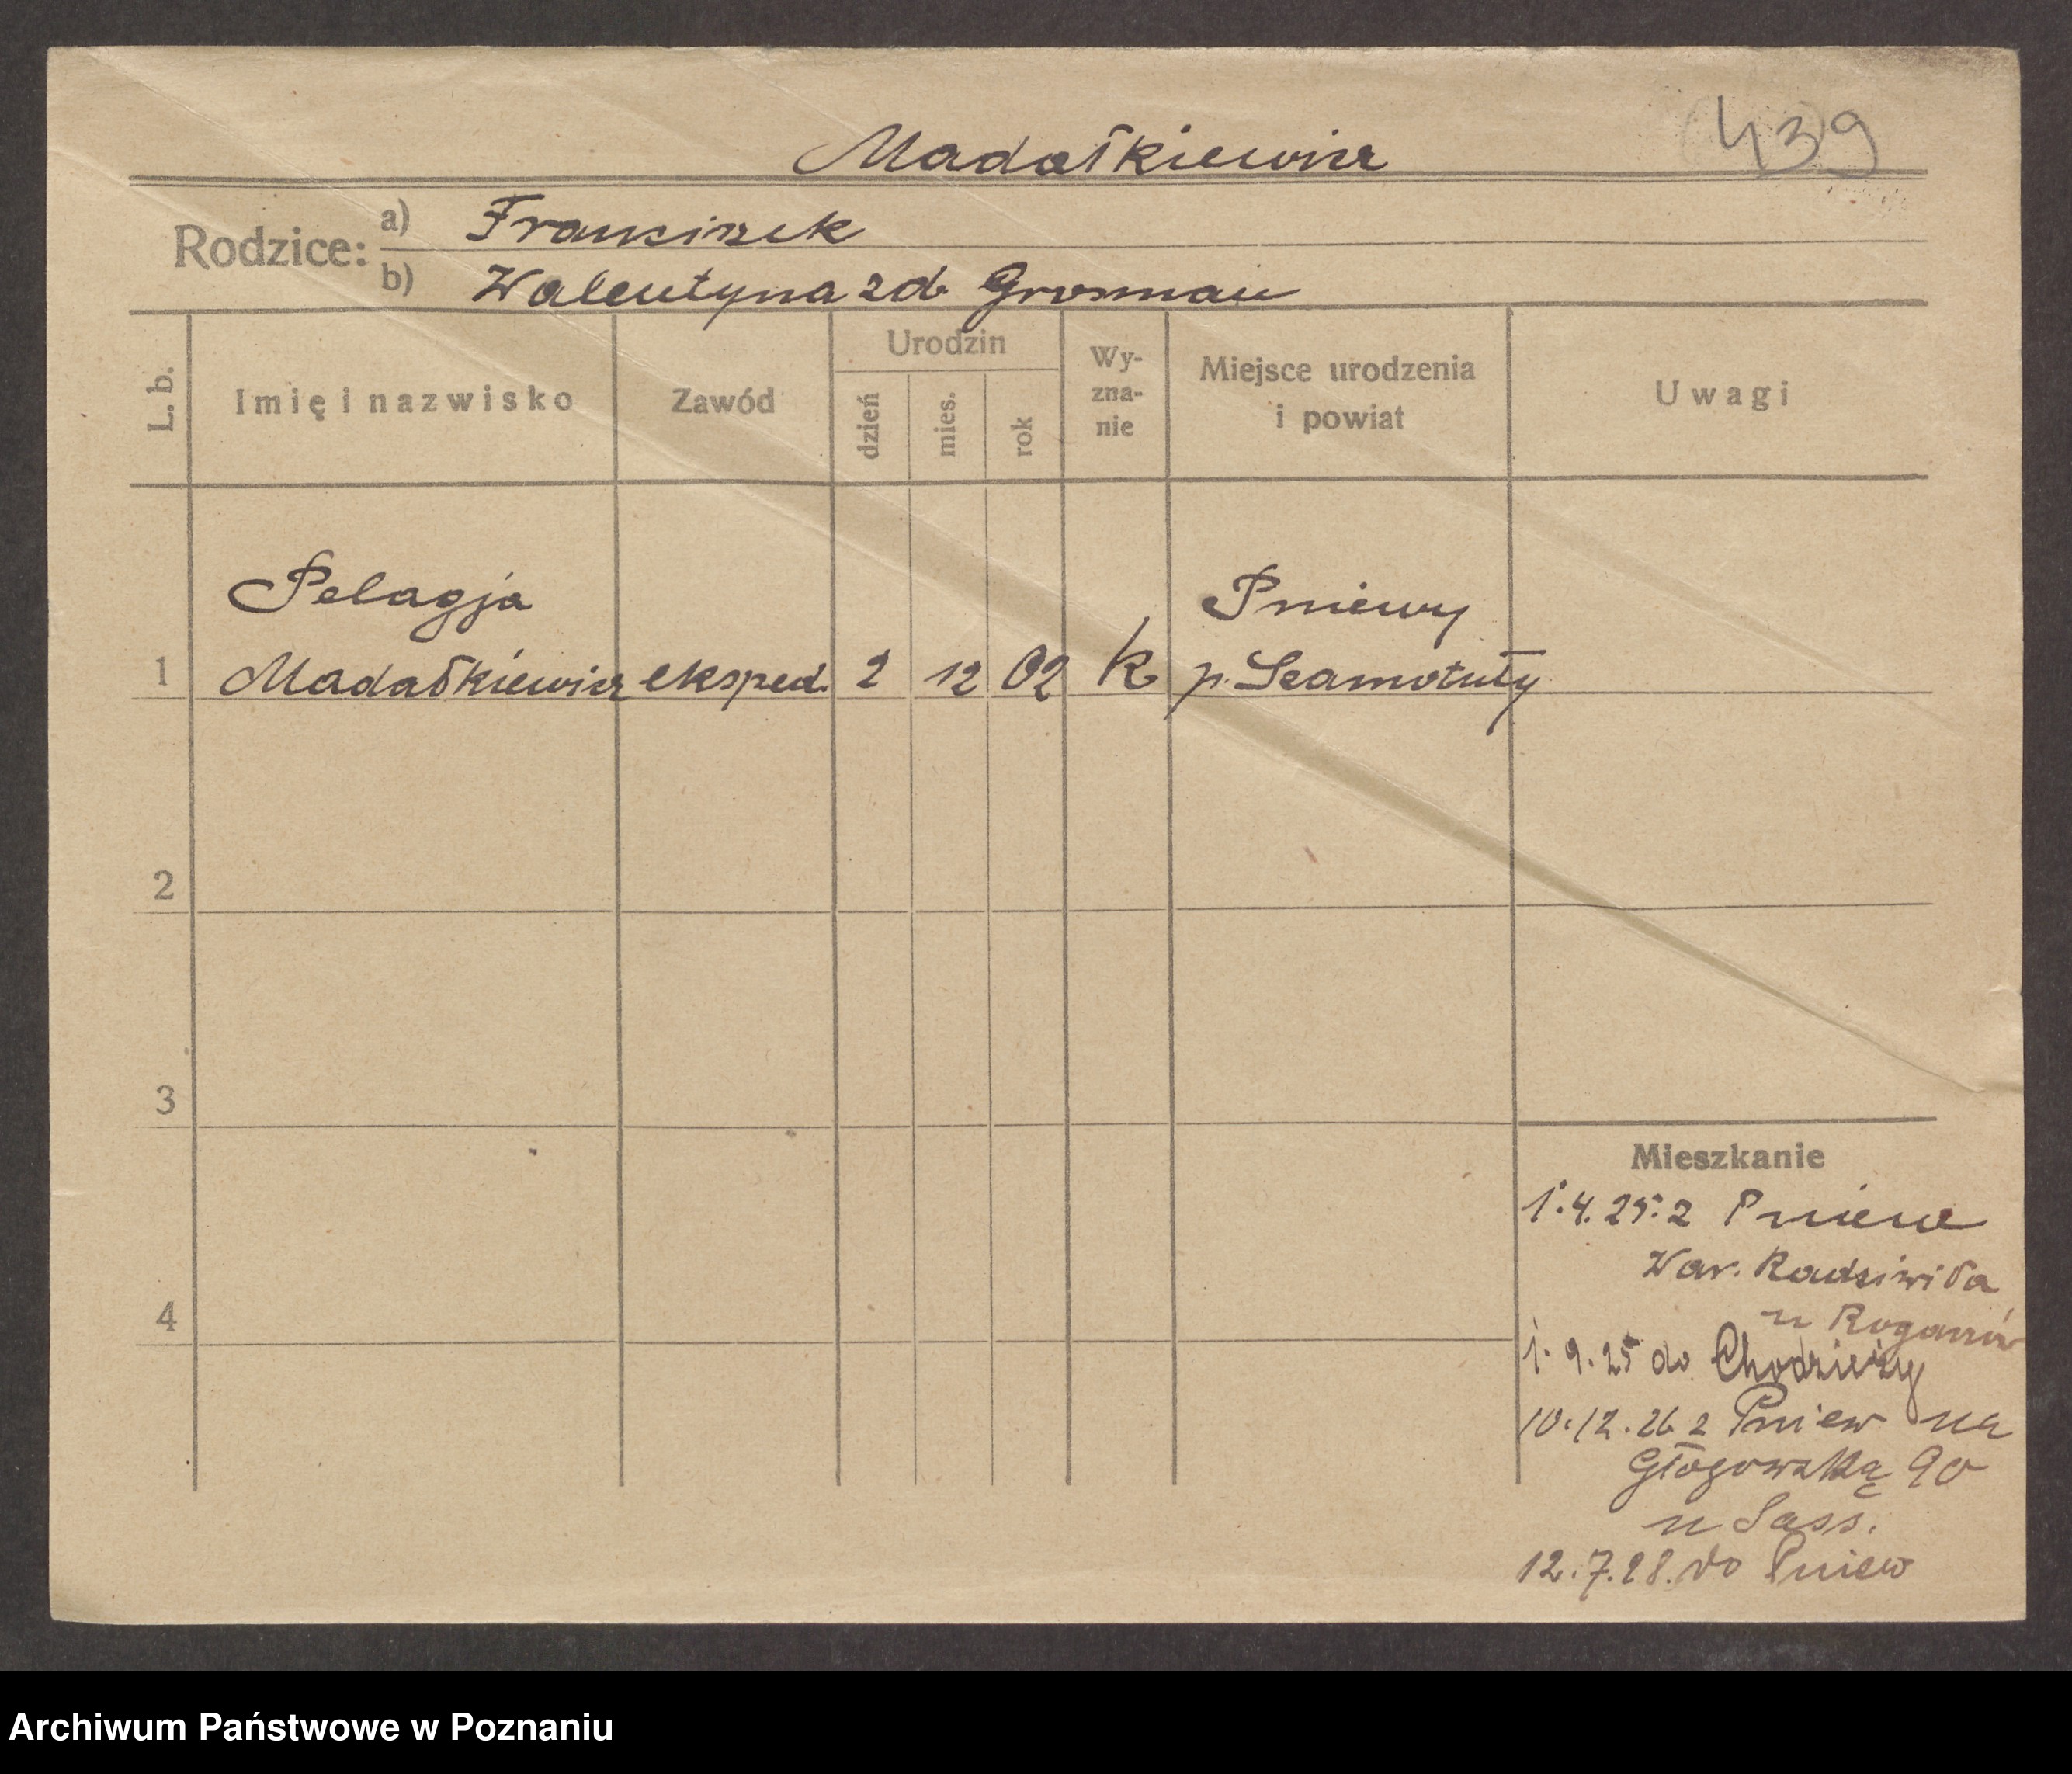 439
Madałkiewicz
Rodzice:
a) Franciszek
b) Walentyna zd. Grosman
L. b.
Imię i nazwisko
Zawód
Urodzin
dzień
mies.
rok
Wy-
zna-
nie
Miejsce urodzenia
i powiat
Uwagi
Pelagja
Pniewy
1 Madałkiewicz eksped. 2 12 02 k p. Szamotuły
2
3
4
Mieszkanie
1.4.25. z Pniew
War. Radziwiła
u
1.9.25 do Chodzieży
10.12.26 z Pniew na
Głogowską 90
u Sass.
12.7.28. do Pniew
Archiwum Państwowe w Poznaniu